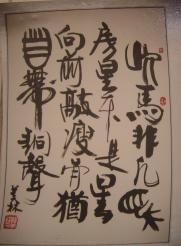 此馬非凡馬
房星本是星
向前敲瘦骨猶
自帶銅聲